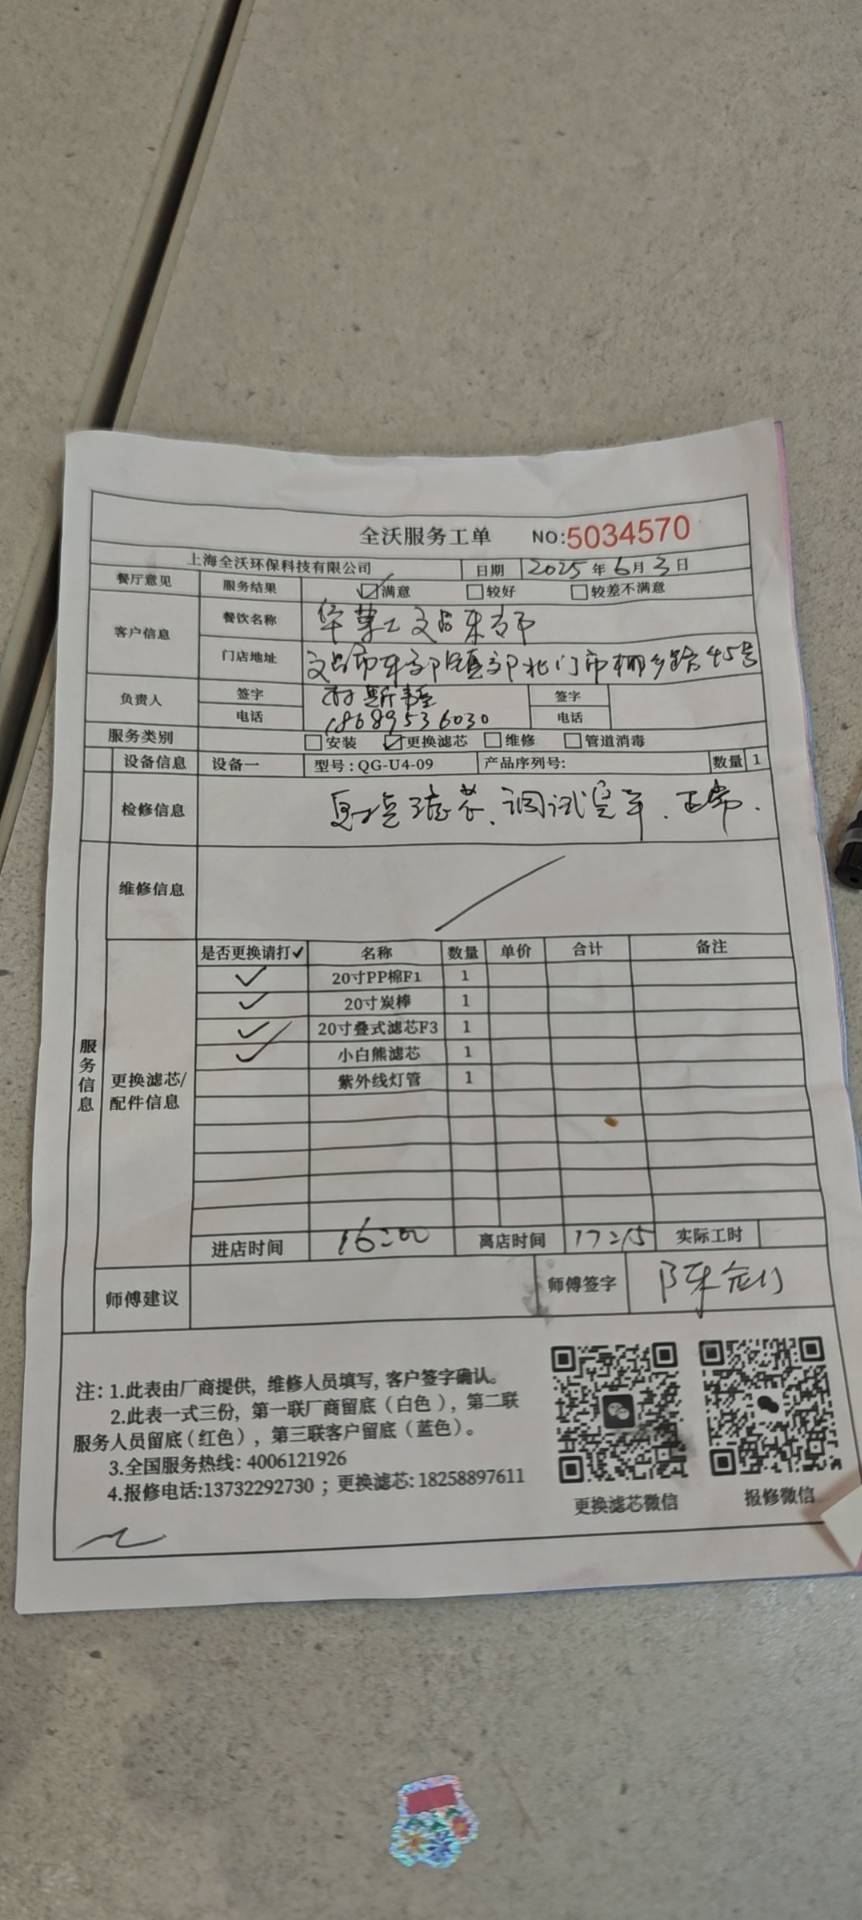 全沃服务工单 NO:5034570
上海全沃环保科技有限公司 日期 2025 年 6 月 3 日
餐厅意见 服务结果 ☑满意 □较好 □较差不满意
客户信息 餐饮名称 华莱士文昌东郊
门店地址 文昌市东郊镇 北门市 路45号
负责人 签字 签字
电话 18689536030 电话
服务类别 □安装 ☑更换滤芯 □维修 □管道消毒
设备信息 设备一 型号:QG-U4-09 产品序列号: 数量 1
检修信息 更换滤芯、调试 正常.
维修信息
服务信息
更换滤芯/配件信息
是否更换请打✓ 名称 数量 单价 合计 备注
✓ 20寸PP棉F1 1
✓ 20寸炭棒 1
✓ 20寸叠式滤芯F3 1
✓ 小白熊滤芯 1
紫外线灯管 1
进店时间 16:00 离店时间 17:15 实际工时
师傅建议 师傅签字 陈
注: 1.此表由厂商提供, 维修人员填写, 客户签字确认。
2.此表一式三份, 第一联厂商留底(白色), 第二联
服务人员留底(红色), 第三联客户留底(蓝色)。
3.全国服务热线: 4006121926
4.报修电话:13732292730 ; 更换滤芯: 18258897611
更换滤芯微信 报修微信